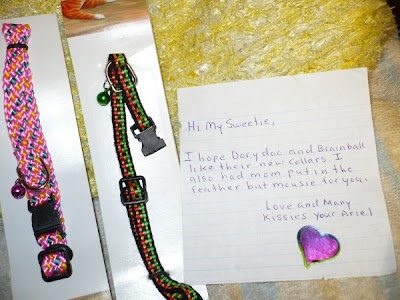 Hi My Sweetie,
I hope Dorydoo and Brainball
like their new collars I
also had mom put in the
feather but mousie for you.
Love and Many
Kissies your Ariel